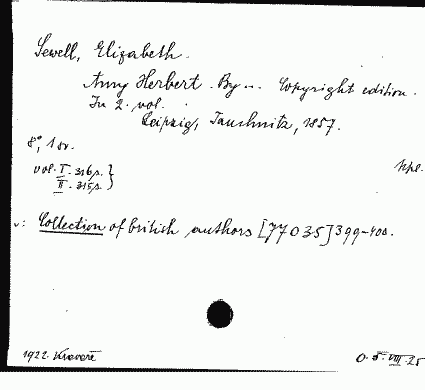 Sewell, Elizabeth.
Amy Herbert. By... Copyright edition.
In 2. vol.
Leipzig, Tauchnitz, 1857.
8°, 1 sv.
vol. I. 316 p. }
II. 315 p. }
kpl.
v: Collection of british authors [77035] 399-400.
1922. Kravaře
O. 5. VIII. 25